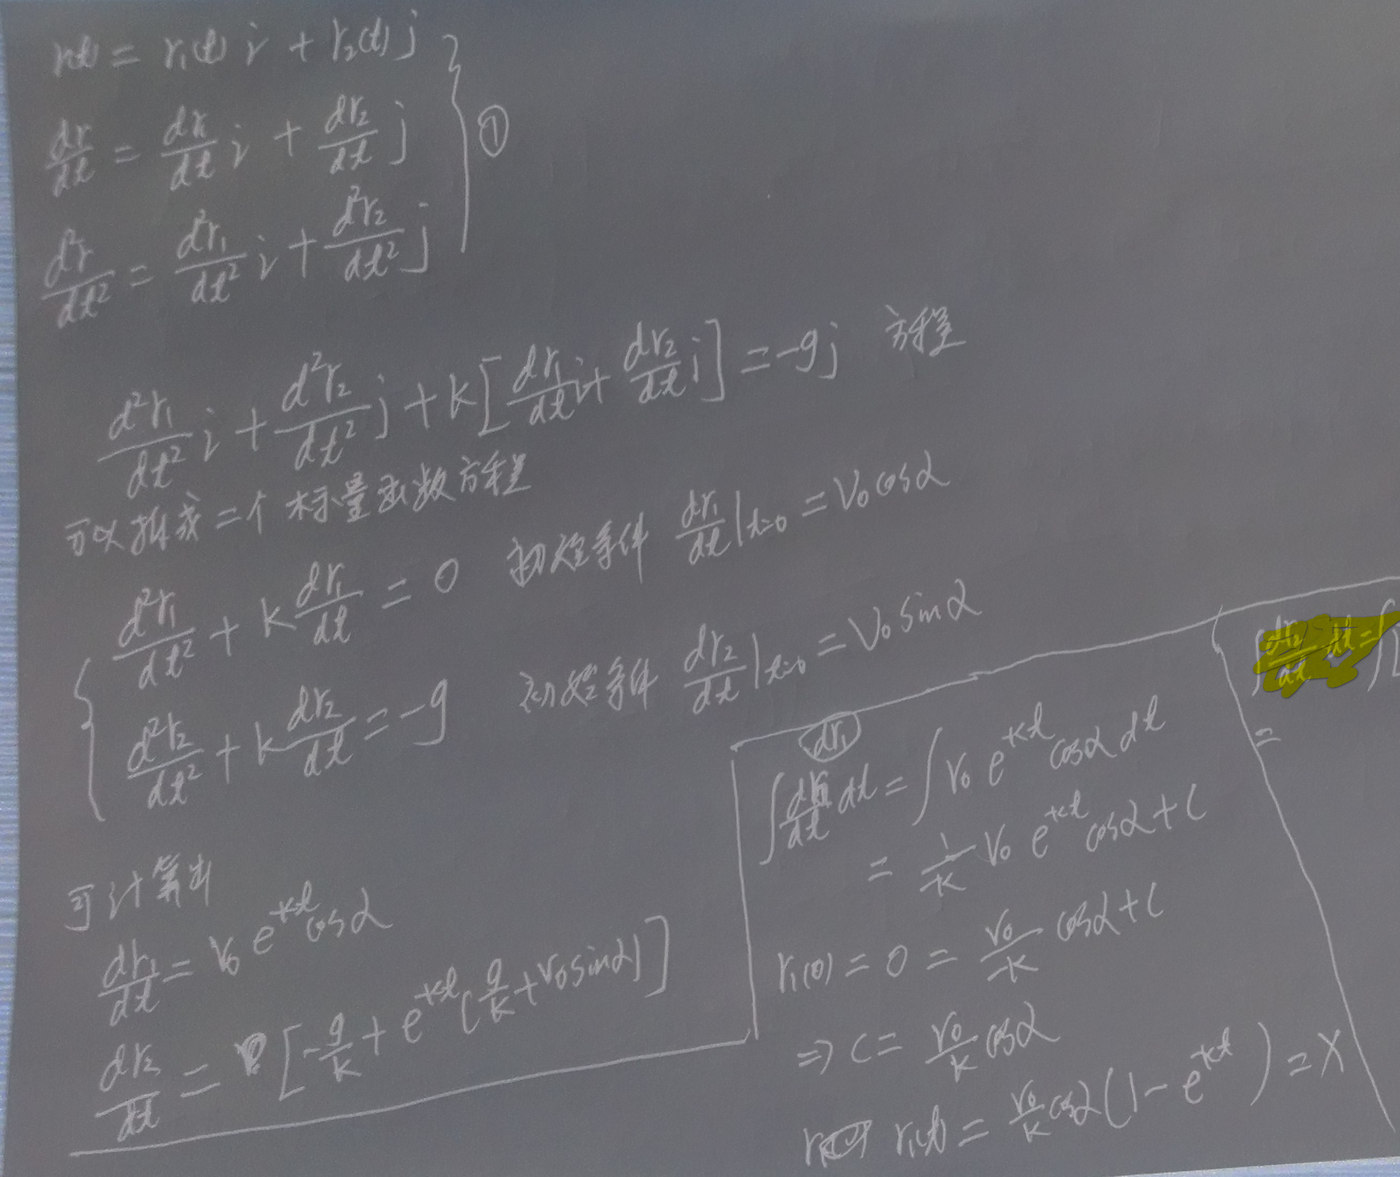 r(t) = r₁(t) i + r₂(t) j
dr/dt = dr/dt i + dr₂/dt j ①
d²r/dt² = d²r₁/dt² i + d²r₂/dt² j
d²r₁/dt² i + d²r₂/dt² j + k[dr₁/dt i + dr₂/dt j] = -gj 方程
可以拆成二个标量函数方程
d²r₁/dt² + k dr₁/dt = 0 初始条件 dr₁/dt|t=0 = V₀cosα
d²r₂/dt² + k dr₂/dt = -g 初始条件 dr₂/dt|t=0 = V₀sinα
可计算出
dr₁/dt = V₀ e^-kt cosα
dr₂/dt = [-g/k + e^-kt (g/k + V₀sinα)]
dr₁
∫ dr₁/dt dt = ∫ V₀ e^-kt cosα dt
= 1/-k V₀ e^-kt cosα + C
r₁(0) = 0 = V₀/-k cosα + C
⇒ C = V₀/k cosα
r₁(t) = V₀/k cosα (1 - e^-kt) = X
∫ dr₂/dt dt = ∫ [
=